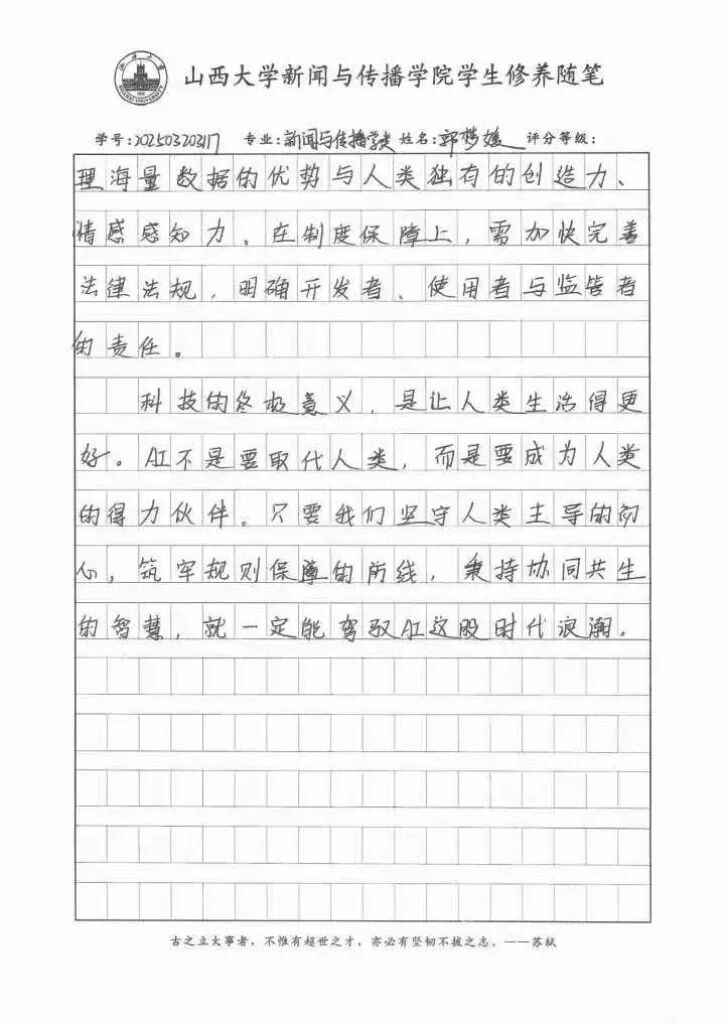 山西大学新闻与传播学院学生修养随笔
学号:202503203117 专业:新闻与传播学类 姓名:郭梦媛 评分等级:
理海量数据的优势与人类独有的创造力、
情感感知力。在制度保障上,需加快完善
法律法规,明确开发者、使用者与监管者
的责任。
科技的终极意义,是让人类生活得更
好。AI不是要取代人类,而是要成为人类
的得力伙伴。只要我们坚守人类主导的初
心,筑牢规则保障的防线,秉持协同共生
的智慧,就一定能驾驭AI这股时代浪潮。
古之立大事者,不惟有超世之才,亦必有坚韧不拔之志。——苏轼